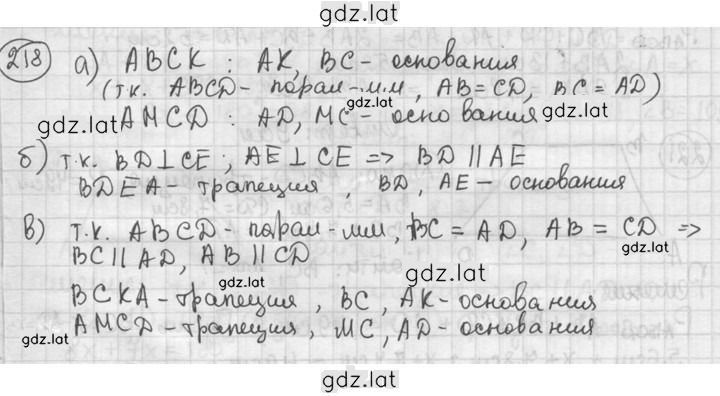 gdz.lat
218 а) ABCK : AK, BC - основания
(т.к. ABCD - парал-мм, AB = CD, BC = AD)
gdz.lat
gdz.lat AMCD : AD, MC - основания gdz.lat
б) т.к. BD ⊥ CE, AE ⊥ CE => BD || AE
BDEA - трапеция, BD, AE - основания
в) т.к. ABCD - парал-мм, BC = AD, AB = CD =>
gdz.lat gdz.lat
BC || AD, AB || CD
gdz.lat gdz.lat
BCKA - трапеция, BC, AK - основания
AMCD - трапеция, MC, AD - основания
gdz.lat gdz.lat
gdz.lat